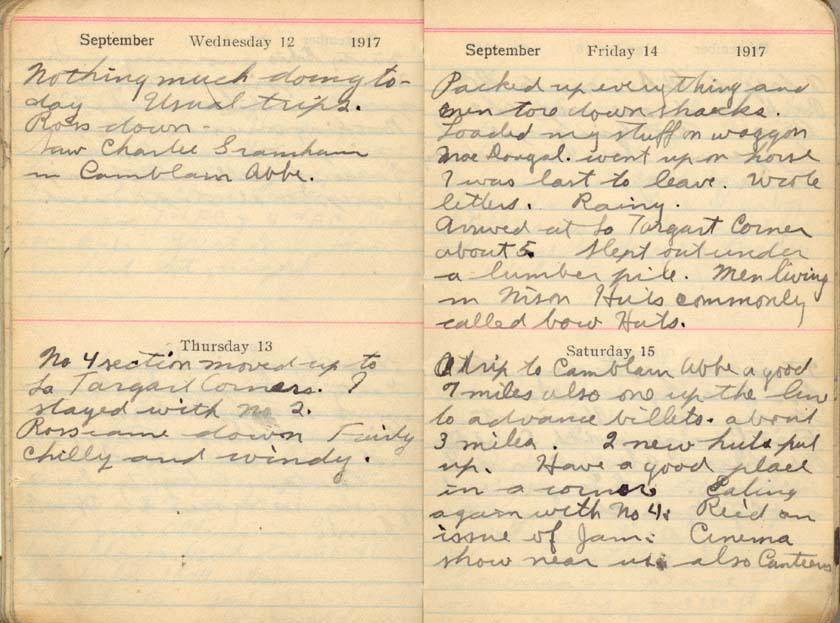 September Wednesday 12 1917
Nothing much doing to-
day Usual trips.
Ross down-
Saw Charlie Gramham
in Camblain Abbe.
Thursday 13
No 4 section moved up to
La Targart Corners. I
stayed with No 2.
Ross came down Fairly
chilly and windy.
September Friday 14 1917
Packed up everything and
men tore down shacks.
Loaded my stuff on waggon
Mac Dougal. went up on horse
I was last to leave. Wrote
letters. Rainy.
Arrived at La Targart Corner
about 5. Slept out under
a lumber pile. Men living
in Nison Huts commonly
called bow Huts.
Saturday 15
A trip to Camblain Abbe a good
7 miles also one up the line
to advance billets. about
3 miles. 2 new huts put
up. Have a good place
in a corner. Eating
again with No 4. Rec'd an
issue of Jam. Cinema
show near us. also Canteens